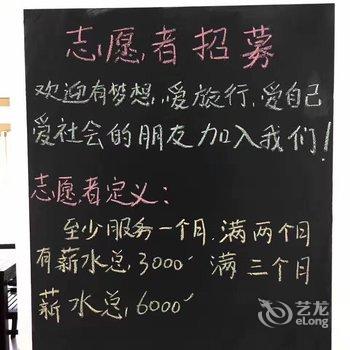 志愿者招募
欢迎有梦想,爱旅行,爱自己
爱社会的朋友加入我们!
志愿者定义:
至少服务一个月,满两个月
有薪水总,3000 满三个月
薪水总,6000
艺龙
eLong